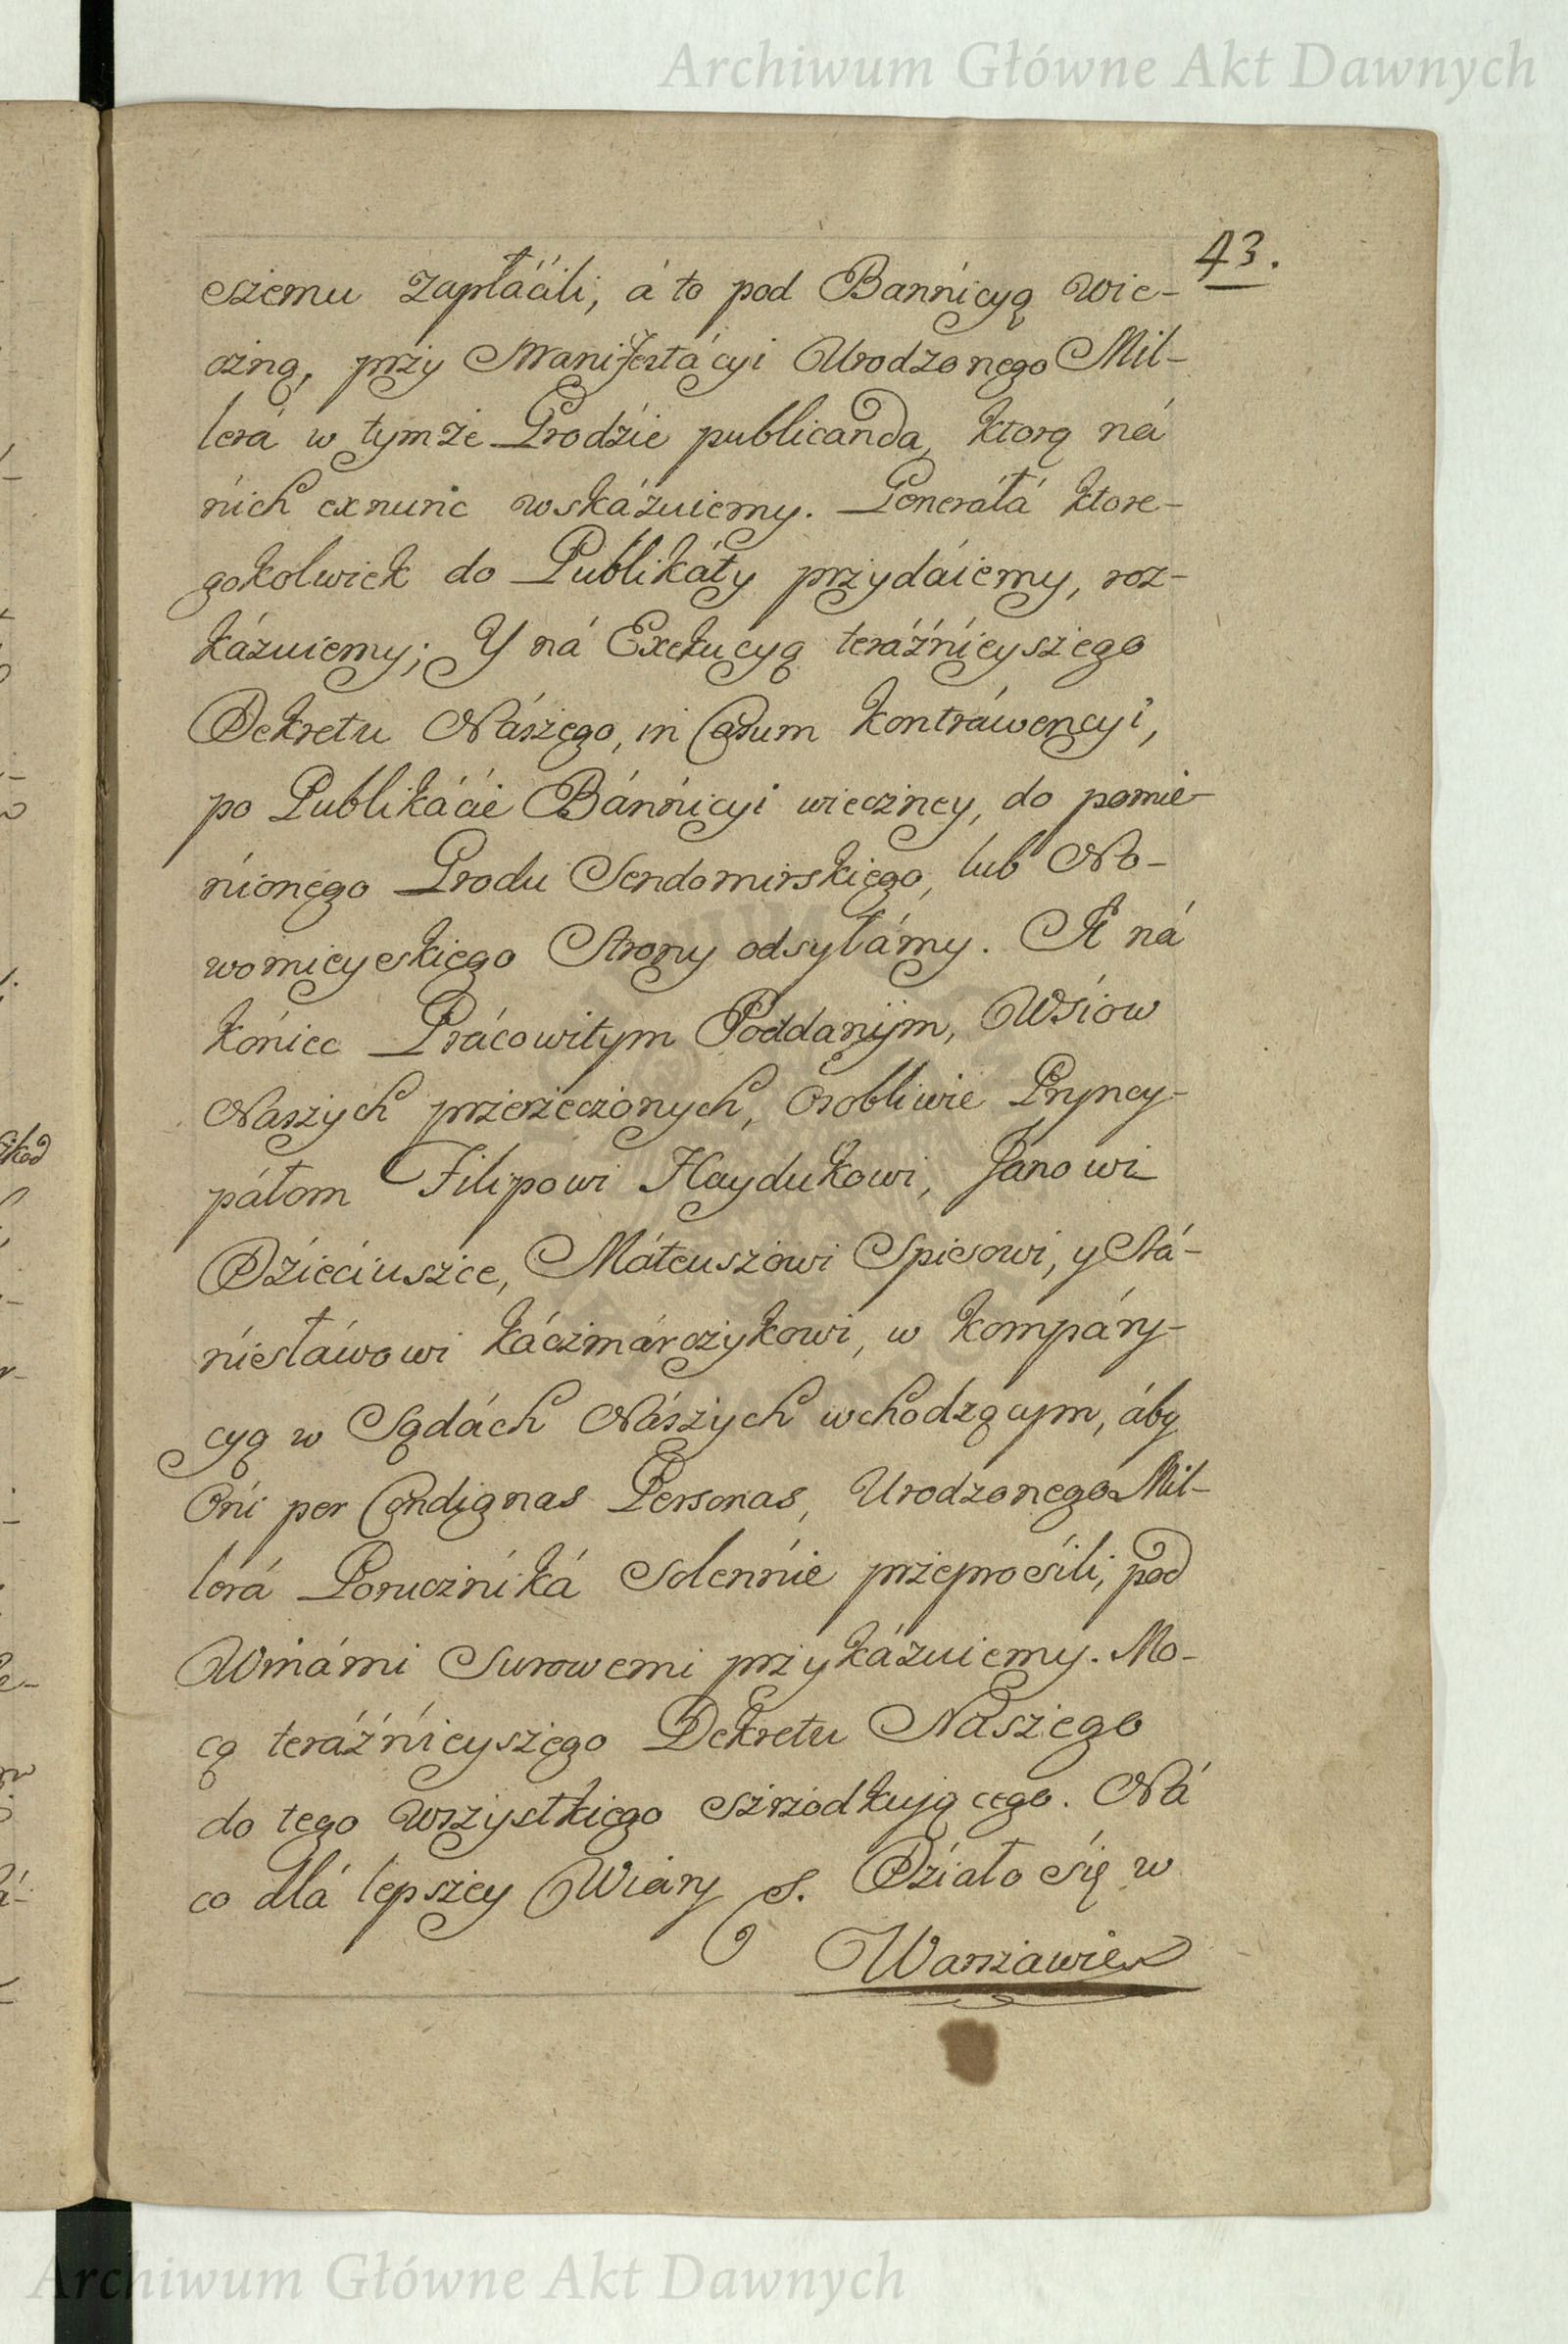 Archiwum Główne Akt Dawnych
43.
szemu zapłáćili, á to pod Bannicyą wie-
czną, przy Manifestácyi Urodzonego Mil-
lerá w tymże Grodzie publicanda, ktorą ná
nich ex nunc wskázuiemy. Generałá ktore-
gokolwiek do Publikáty przydáiemy, roz-
kázuiemy; Y ná Exekucyą teráźnieyszego
Dekretu Nászego, in Casum kontráwencyi,
po Publikácie Bánnicyi wieczney, do pomie-
nionego Grodu Sendomirskiego, lub No-
womieyskiego Strony odsyłámy. A ná
koniec Prácowitym Poddanym, Wśiow
Naszych przerzeczonych, osobliwie Pryncy-
páłom Filipowi Haydukowi, Janowi
Dźiećiuszce, Máteuszowi Spiesowi, y Stá-
niesłáwowi Káczmárczykowi, w kompáry-
cyą w Sądách Nászych wchodzącym, áby
Oni per Condignas Personas, Urodzonego Mil-
lerá Poruczniká Solennie przeprośili, pod
Winámi Surowemi przykázuiemy. Mo-
cą teráźnieyszego Dekretu Naszego
do tego wszystkiego szrzodkującego. Ná
co dlá lepszey Wiáry S. Dziáło się w
Warszawie
Archiwum Główne Akt Dawnych